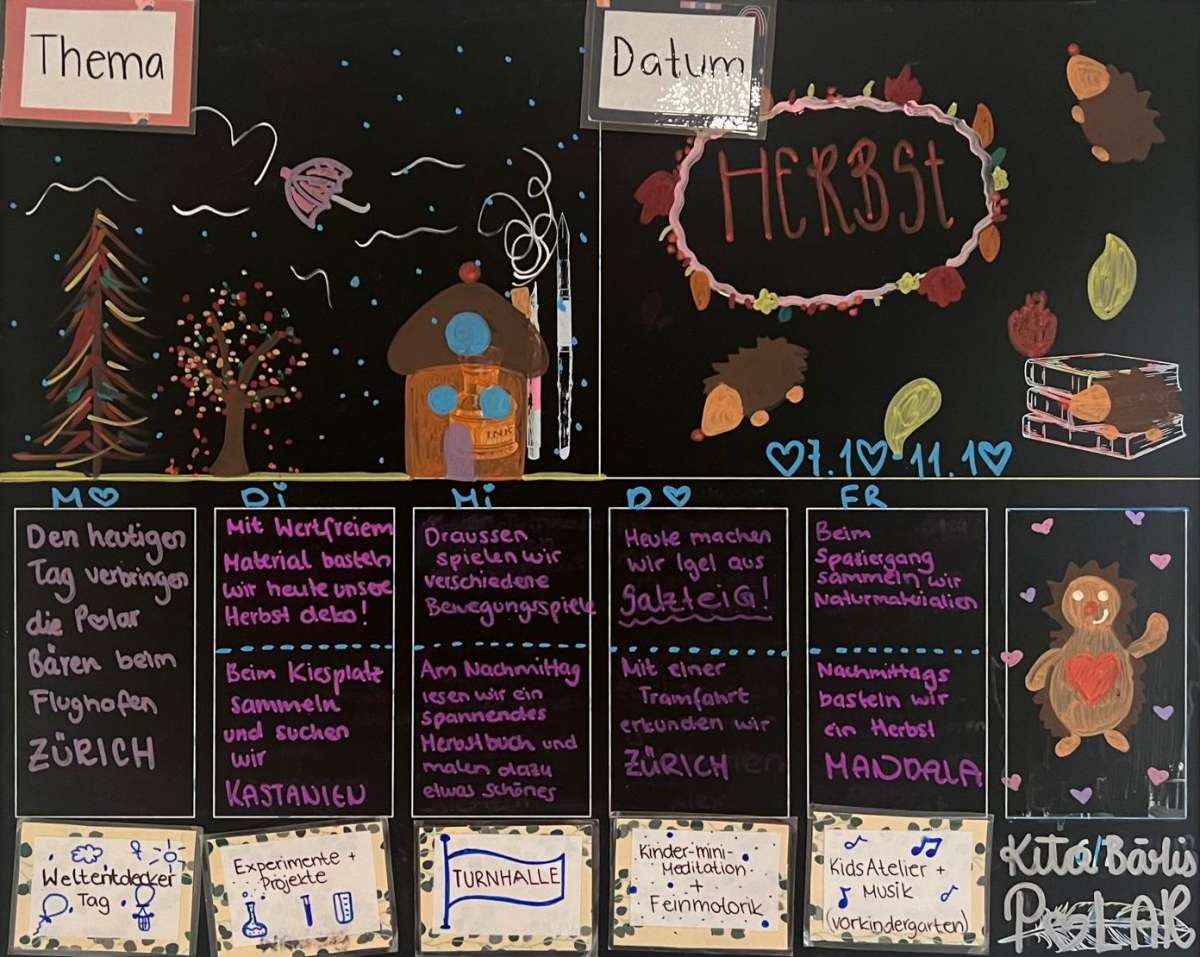 Thema
Datum
HERBSt
♡7.1♡-11.1♡
M♡
Di
Mi
D♡
FR
Den heutigen
Tag verbringen
die Polar
Bären beim
Flughafen
ZÜRICH
Mit Wertfreiem
Material basteln
wir heute unsere
Herbst deko!
Beim Kiesplatz
sammeln
und suchen
wir
KASTANIEN
Draussen
spielen wir
verschiedene
Bewegungsspiele
Am Nachmittag
lesen wir ein
spannendes
Herbstbuch und
malen dazu
etwas schönes
Heute machen
wir Igel aus
Salzteig!
Mit einer
Tramfahrt
erkunden wir
ZÜRICH
Beim
Spaziergang
sammeln wir
Naturmaterialien
Nachmittags
basteln wir
ein Herbst
MANDALA
Weltentdecker
Tag
Experimente +
Projekte
TURNHALLE
Kinder-mini-
Meditation
+
Feinmotorik
Kids Atelier +
Musik
(vorkindergarten)
Kita Bärlis
POLAR